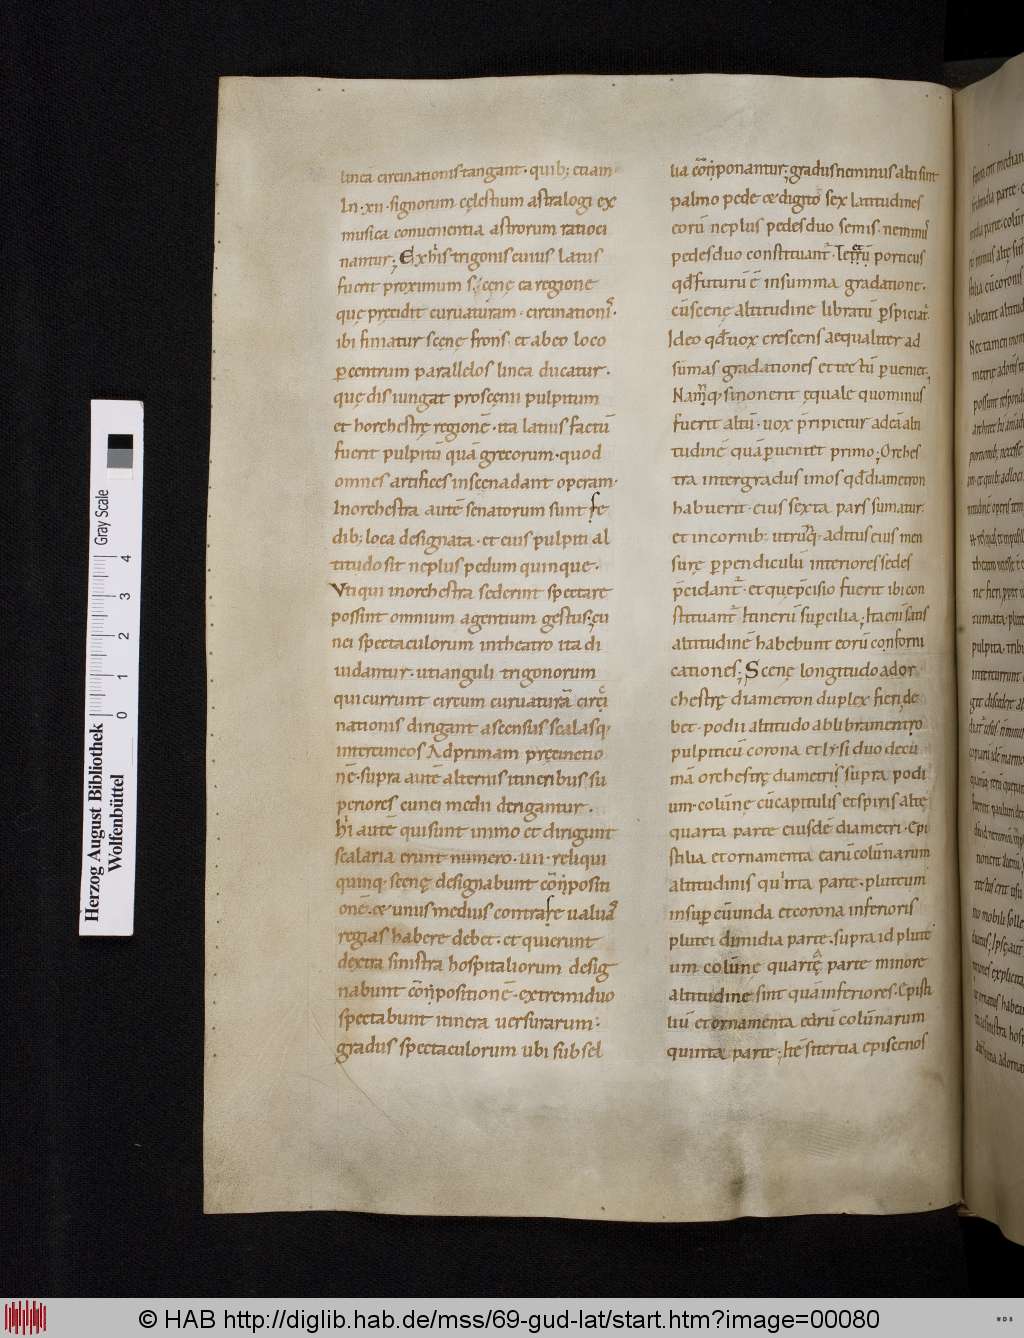 lineā circinationis tangant · quib; etiam
In · xii · signorum cęlestium astralogi ex
musica conuenientia astrorum ratioci
nantur; Ex his trigonis cuius latus
fuerit proximum scęnę ea regione
quę precidit curuaturam · circinationis ·
ibi finiatur scenę frons · et ab eo loco
p centrum parallelos linea ducatur ·
quę disiungat proscęnii pulpitum
et horchestrę regionē · ita latius factū
fuerit pulpitū quā grecorum · quod
omnes artifices in scena dant operam ·
In orchestra autē senatorum sunt se
dib; loca designata · et eius pulpiti al
titudo sit ne plus pedum quinque ·
Vti qui in orchestra sederint spectare
possint omnium agentium gestus; cu
nei spectaculorum in theatro ita di
uidantur · uti anguli trigonorum
qui currunt circum curuaturā circi
nationis dirigant ascensus scalasq
inter cuneos Ad primam pręcinctio
nē · supra autē alternis itineribus su
periores cunei medii derigantur ·
hi autē qui sunt in imo et dirigunt
scalaria erunt numero · uii · reliqui
quinq · scenę designabunt cōnpositi
onē · & unus medius contra se ualuas
regias habere debet · et qui erunt
dextra sinistra hospitaliorum desig
nabunt cōnpositionē · extremi duo
spectabunt itinera uersurarum ·
gradus spectaculorum ubi subsel
lia cōnponantur; gradus ne minus alti sint
palmo pede & digito sex latitudines
eorū ne plus pedes duo semis · ne minus
pedes duo constituantur · Tectū porticus
qđ futurū ē in summa gradatione ·
cū scenę altitudine libratū pspiciat
Ideo qđ uox crescens aequaliter ad
sūmas gradationes et tectū pueniet
Namq si non erit ęquale quo minus
fuerit altū · uox pripietur ad eā alti
tudinē quā pueniet primo; Orches
tra inter gradus imos qđ diametron
habuerit · eius sexta pars sumatur ·
et in cornib; utrūq · aditus eius men
surę ppendiculū interiores sedes
pcidant · et quę pcisio fuerit ibi con
stituant Itinerū supcilia; Ita enī satis
altitudinē habebunt eorū conforni
cationes; Scenę longitudo ad or
chestrę diametron duplex fieri de
bet · podii altitudo ab libramento
pulpiti cū corona et lysi duo deci
mā orchestrę diametris supra podi
um · colūnę cū capitulis et spiris altę
quarta parte eiusdē diametri · Epi
stilia et ornamenta earū colūnarum
altitudinis quinta parte · pluteum
insup cū unda et corona inferioris
plutei dimidia parte · supra id plute
um colūnę quartę parte minore
altitudine sint quā inferiores · Episti
liū et ornamenta earū colūnarum
quinta parte; Itē si tertia episcenos
Herzog August Bibliothek
Wolfenbüttel
0 1 2 3 4
Gray Scale
© HAB http://diglib.hab.de/mss/69-gud-lat/start.htm?image=00080